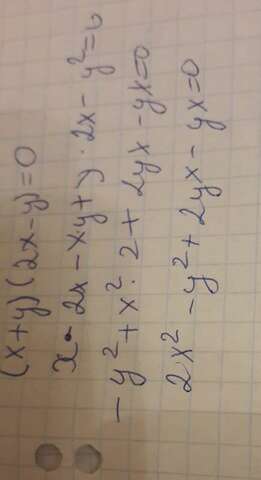 (x+y)(2x-y)=0
x·2x-xy+y·2x-y²=0
-y²+x²·2+2yx-yx=0
2x²-y²+2yx-yx=0